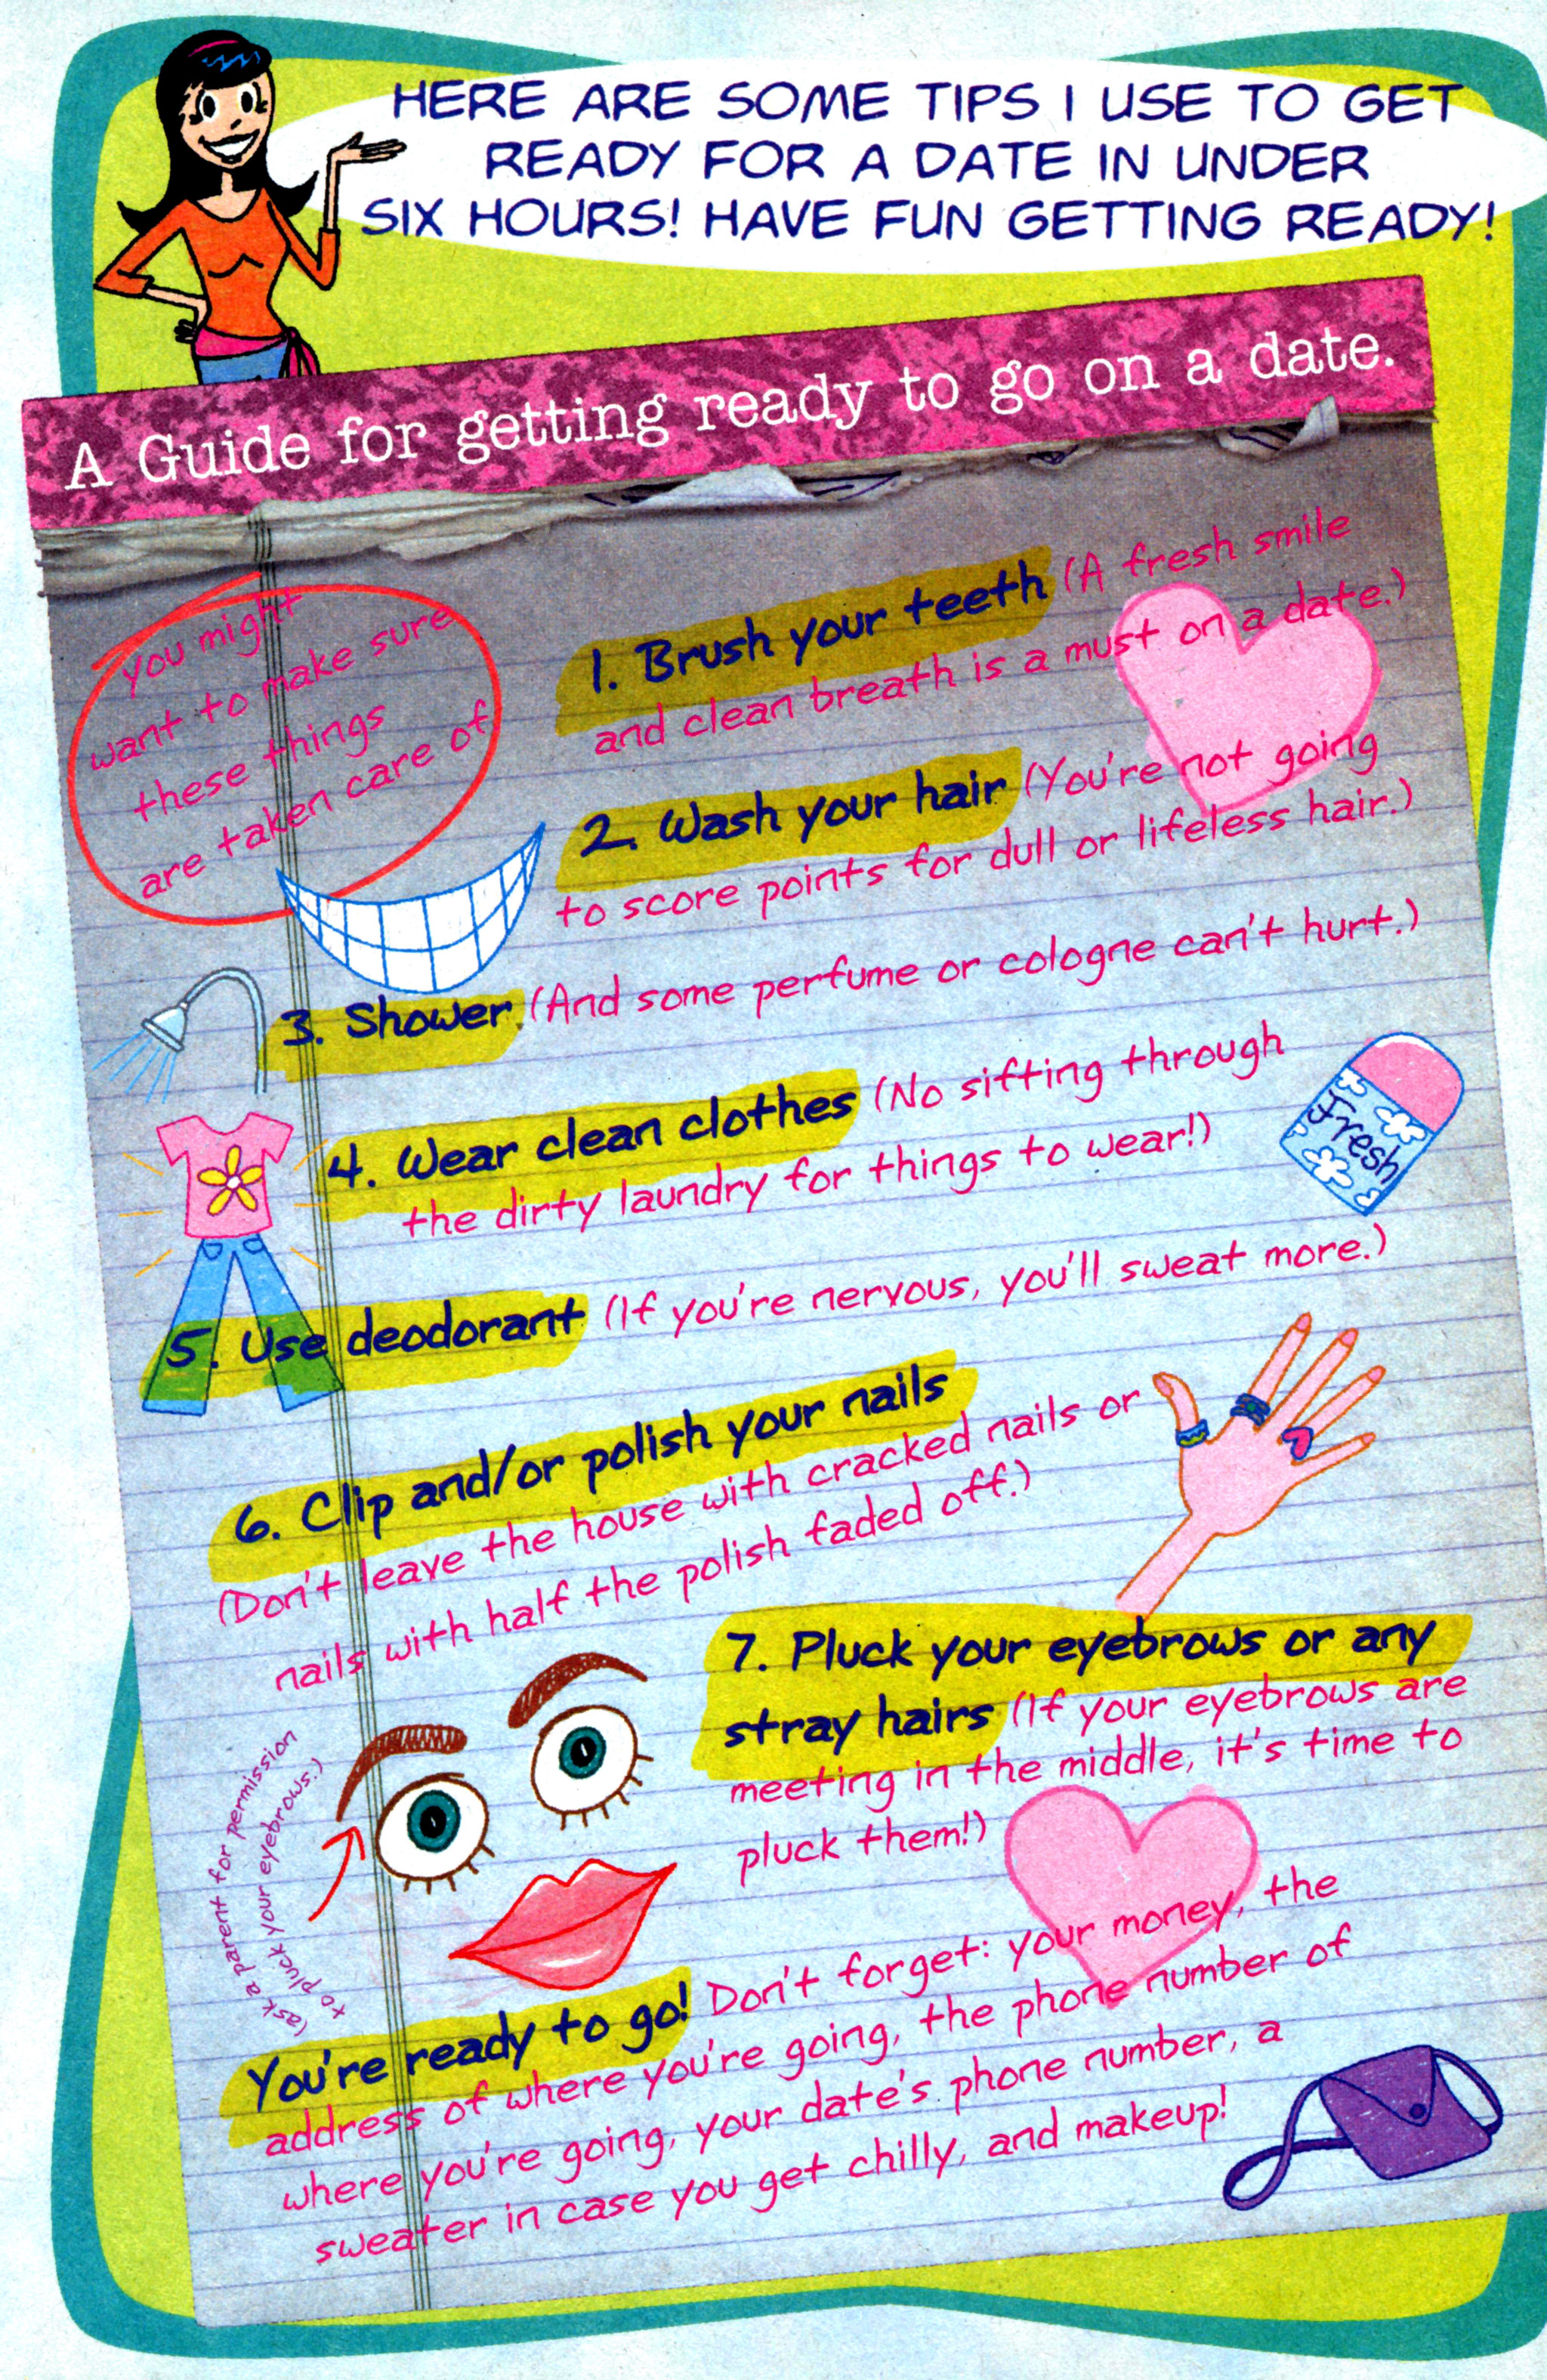 HERE ARE SOME TIPS I USE TO GET
READY FOR A DATE IN UNDER
SIX HOURS! HAVE FUN GETTING READY!
A Guide for getting ready to go on a date.
you might
want to make sure
these things
are taken care of
1. Brush your teeth (A fresh smile
and clean breath is a must on a date.)
2. Wash your hair (You're not going
to score points for dull or lifeless hair.)
3. Shower (And some perfume or cologne can't hurt.)
4. Wear clean clothes (No sifting through
the dirty laundry for things to wear!)
fresh
5. Use deodorant (If you're nervous, you'll sweat more.)
6. Clip and/or polish your nails
(Don't leave the house with cracked nails or
nails with half the polish faded off.)
7. Pluck your eyebrows or any
stray hairs (If your eyebrows are
meeting in the middle, it's time to
pluck them!)
(ask a parent for permission
to pluck your eyebrows.)
You're ready to go! Don't forget: your money, the
address of where you're going, the phone number of
where you're going, your date's phone number, a
sweater in case you get chilly, and makeup!